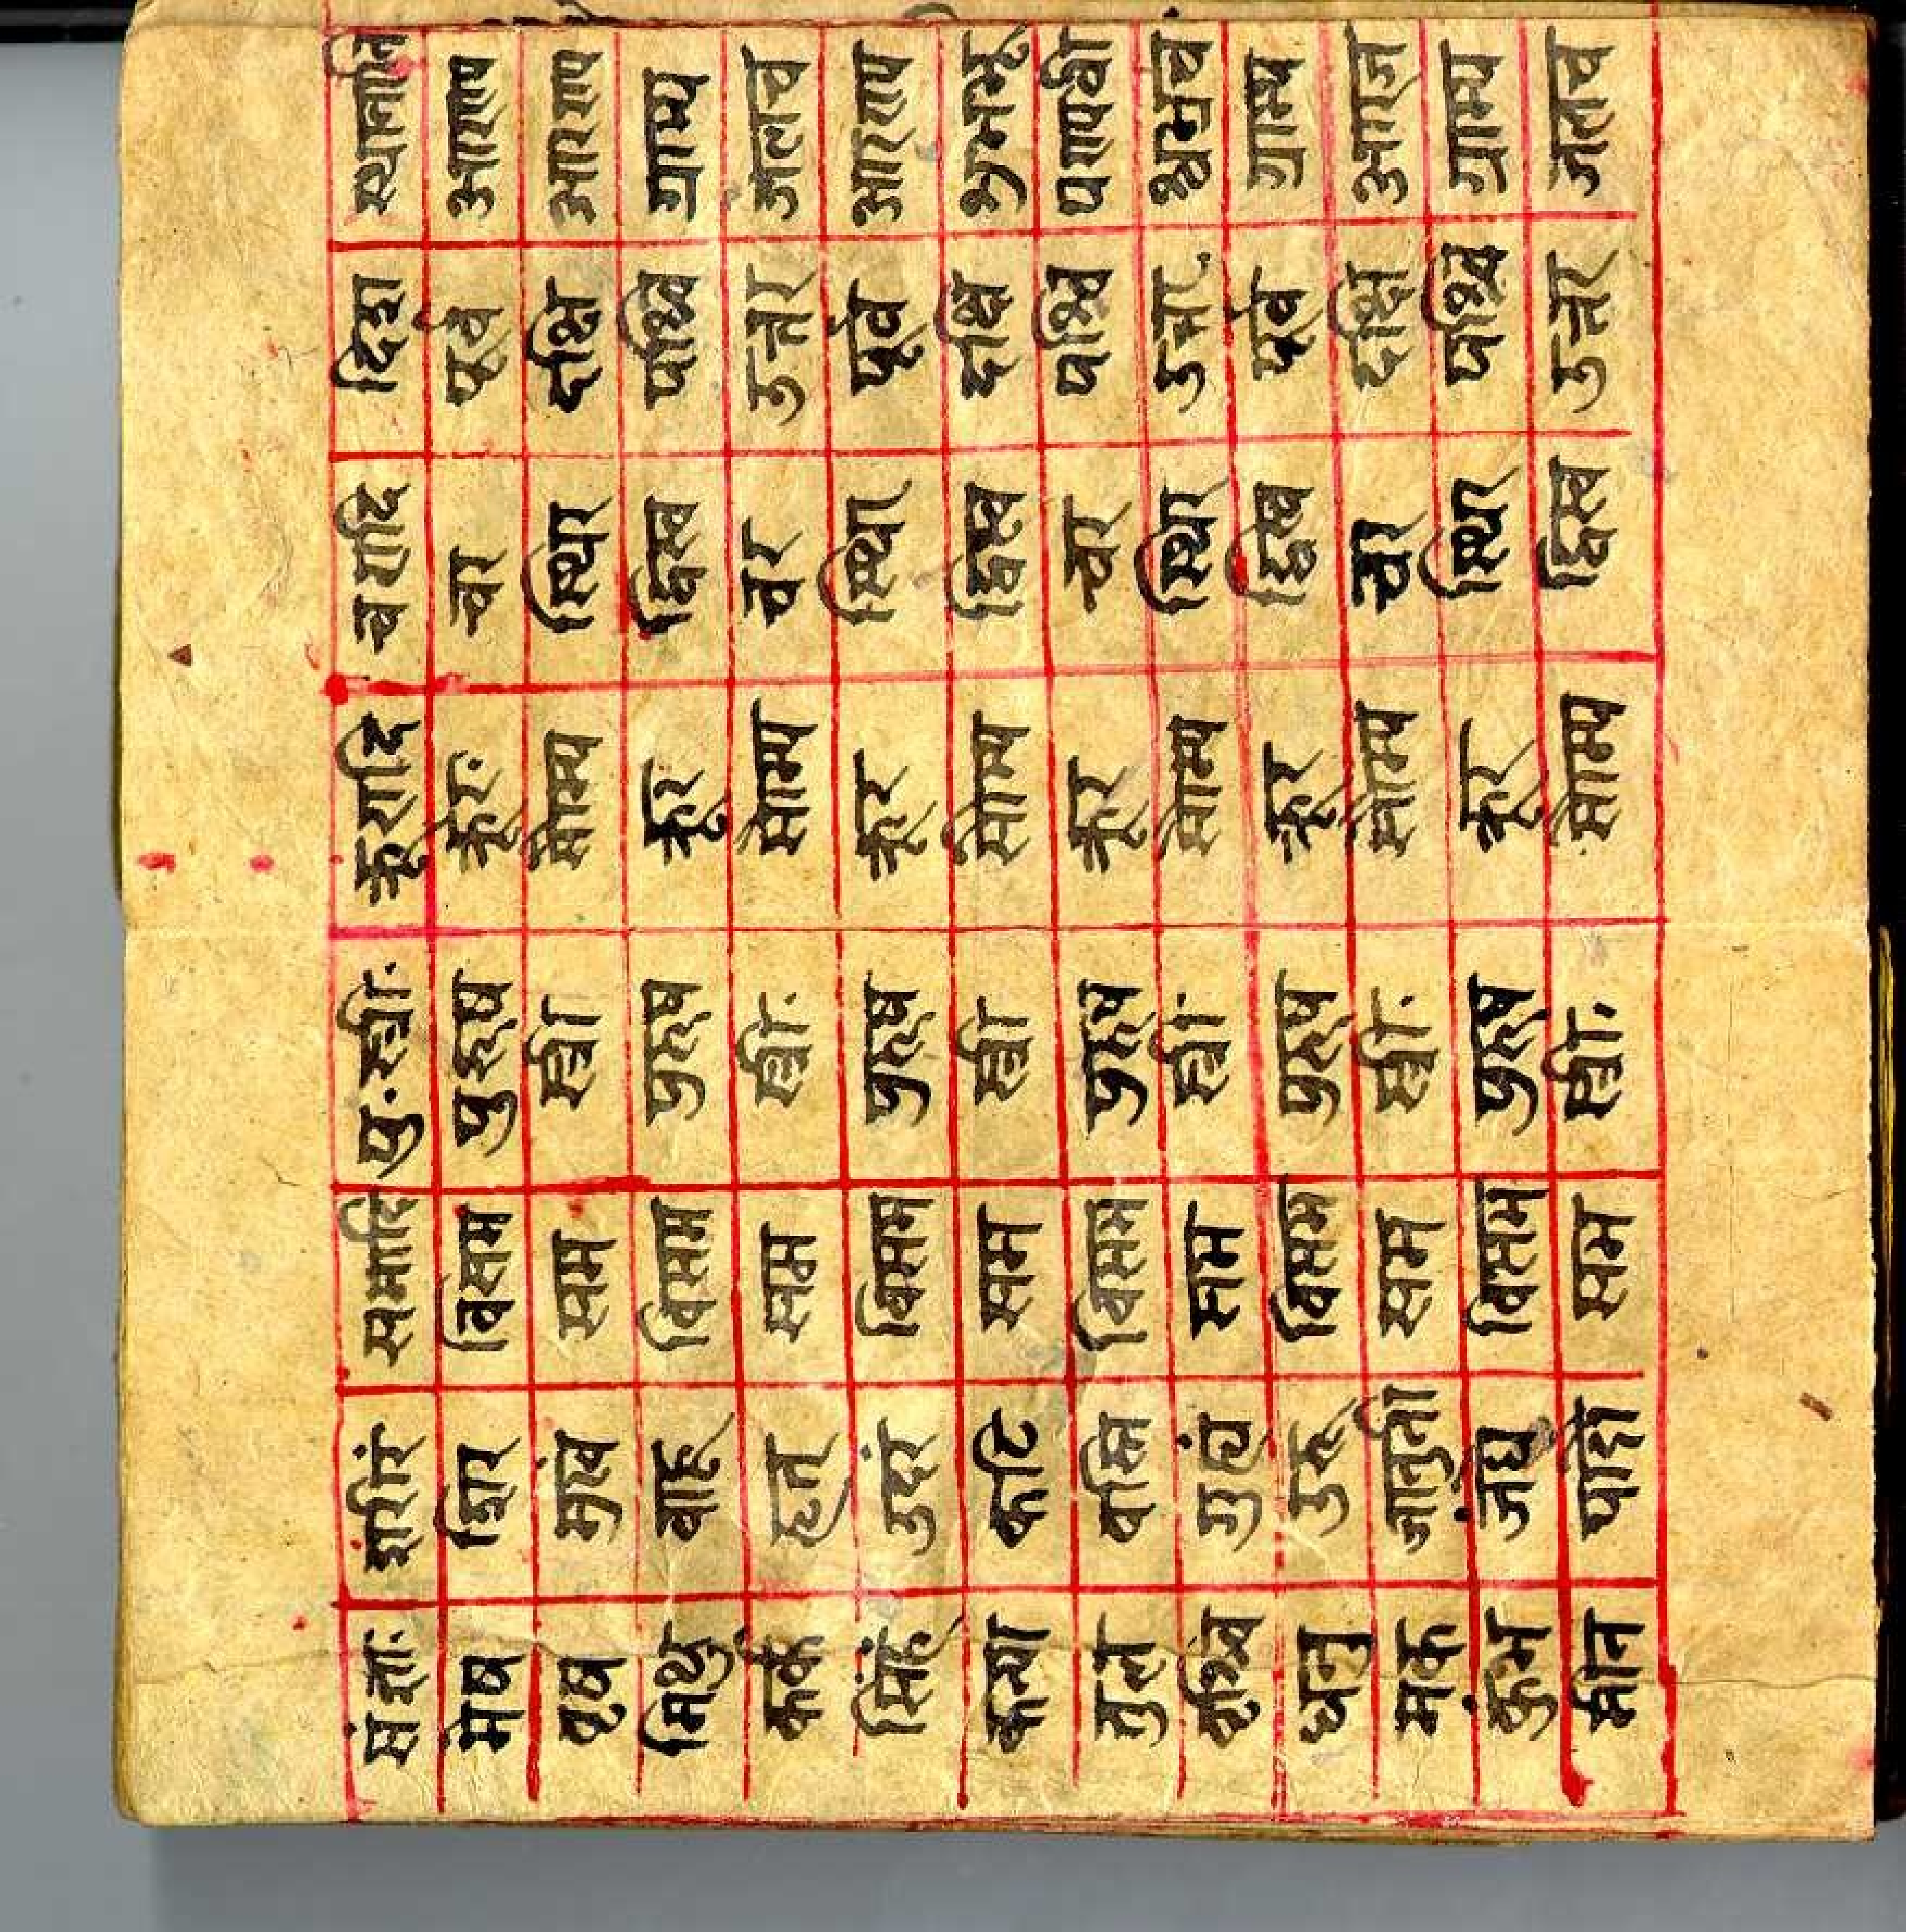 संज्ञाः शरीरं समादि पु·स्त्री· क्रूरादि चरादि दिशा
मेष शिर विसम पुरुष क्रूर· चर पूर्व आरण्य
वृष मुख सम स्त्री सौम्य स्थिर दक्षि आरण्य
मिथु बाहु विसम पुरुष क्रूर द्विस्व पश्चि ग्राम्य
कर्क हृत सम स्त्री· सौम्य चर उत्तर जलच
सिंह उदरं विसम पुरुष क्रूर स्थिर पूर्व आरण्य
कन्या कटि सम स्त्री सौम्य द्विस्व दक्षि
तुल वस्ति विसम पुरुष क्रूर चर पश्चि
वृश्चि गुह्यं सम स्त्री· सौम्य स्थिर उत्तर
धनु उरू विसम पुरुष क्रूर द्विस्व पूर्व ग्राम्य
मकर जानुनी सम स्त्री· सौम्य चर दक्षि
कुंभ जंघ विसम पुरुष क्रूर स्थिर पश्चि ग्राम्य
मीन पादौ सम स्त्री· सौम्य द्विस्व उत्तर जलच